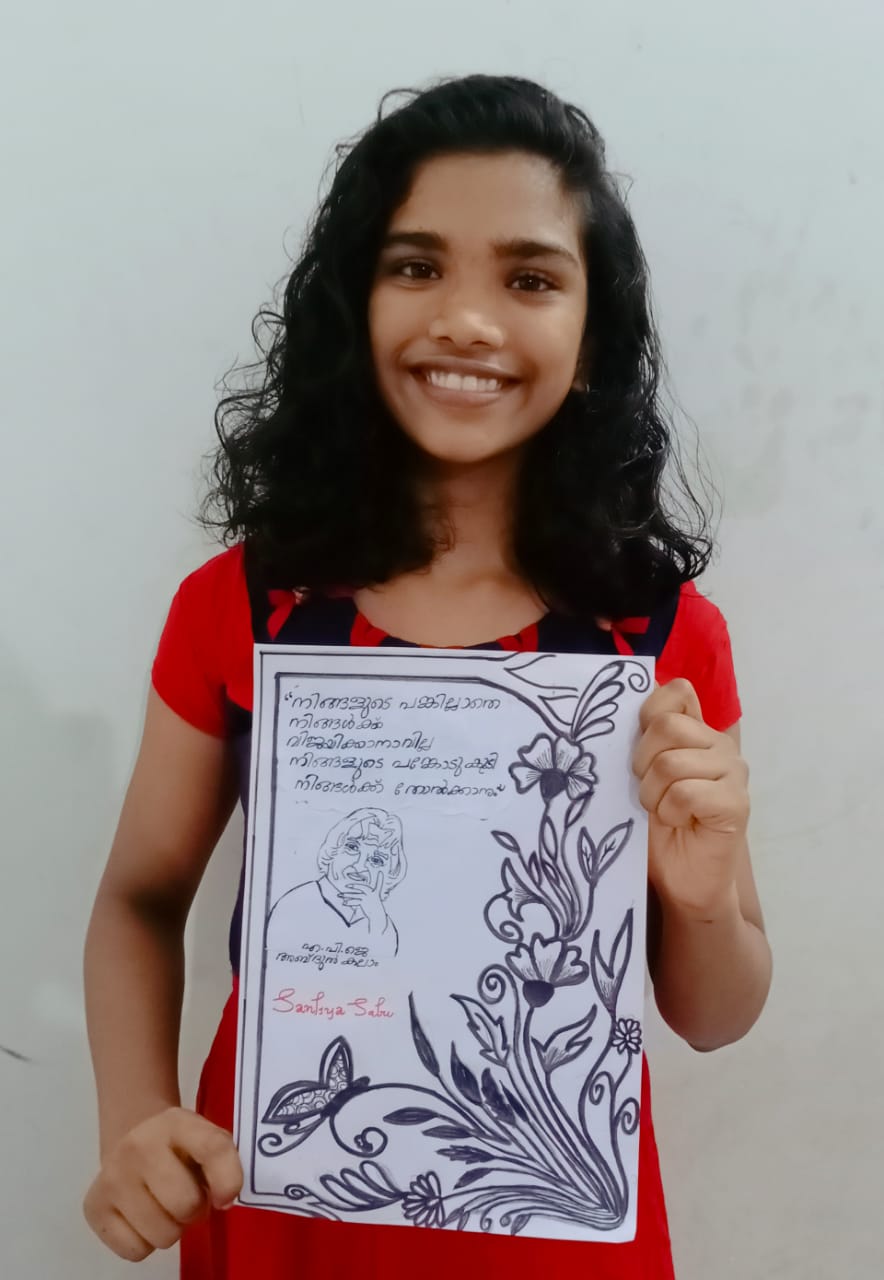 “നിങ്ങളുടെ പങ്കില്ലാതെ
നിങ്ങൾക്ക്
വിജയിക്കാനാവില്ല
നിങ്ങളുടെ പങ്കോടുകൂടി
നിങ്ങൾക്ക് തോൽക്കാനും”
എ.പി.ജെ
അബ്ദുൽ കലാം
Sabu